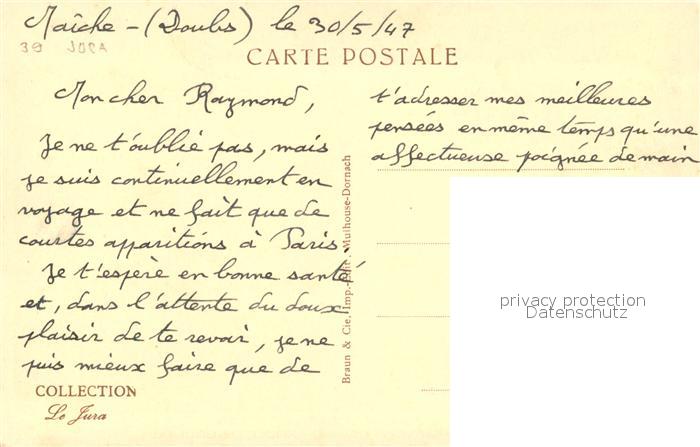 Maîche - (Doubs) le 30/5/47
39 JURA
CARTE POSTALE
Mon cher Raymond,
Je ne t'oublié pas, mais
je suis continuellement en
voyage et ne fait que de
courtes apparitions à Paris.
Je t'espère en bonne santé
et, dans l'attente du doux
plaisir de te revoir, je ne
puis mieux faire que de
t'adresser mes meilleures
pensées en même temps qu'une
affectueuse poignée de main
Braun & Cie, Imp.-Edit. Mulhouse-Dornach
COLLECTION
Le Jura
privacy protection
Datenschutz